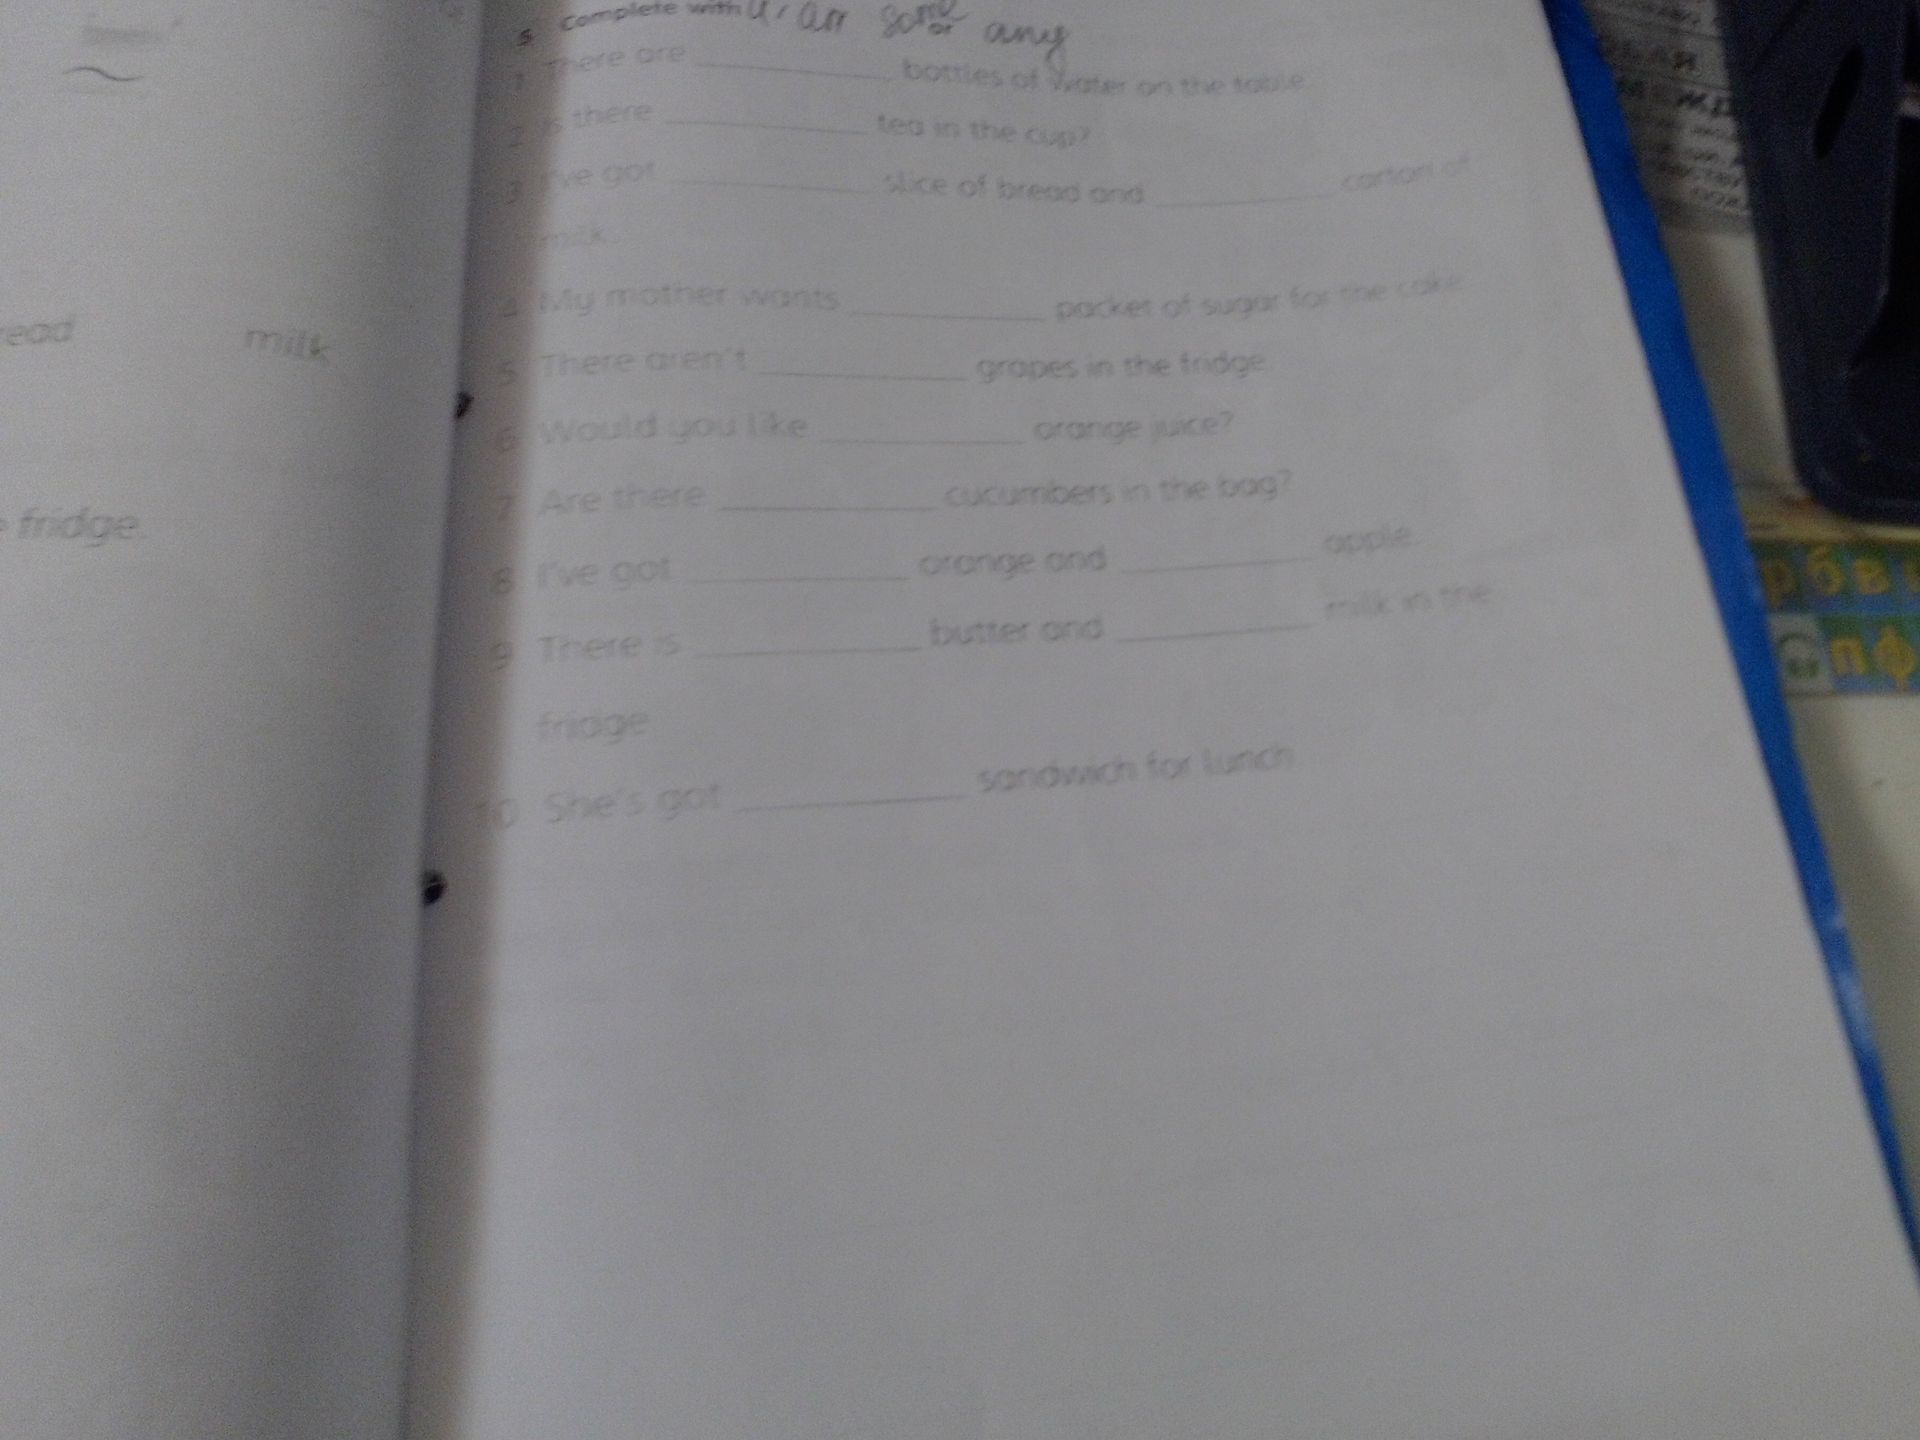 5 Complete with a, an some or any
1 There are __________ bottles of water on the table
2 Is there __________ tea in the cup?
3 I've got __________ slice of bread and __________ carton of
milk.
4 My mother wants __________ packet of sugar for the cake
5 There aren't __________ grapes in the fridge
6 Would you like __________ orange juice?
7 Are there __________ cucumbers in the bag?
8 I've got __________ orange and __________ apple.
9 There is __________ butter and __________ milk in the
fridge
10 She's got __________ sandwich for lunch
milk
fridge.